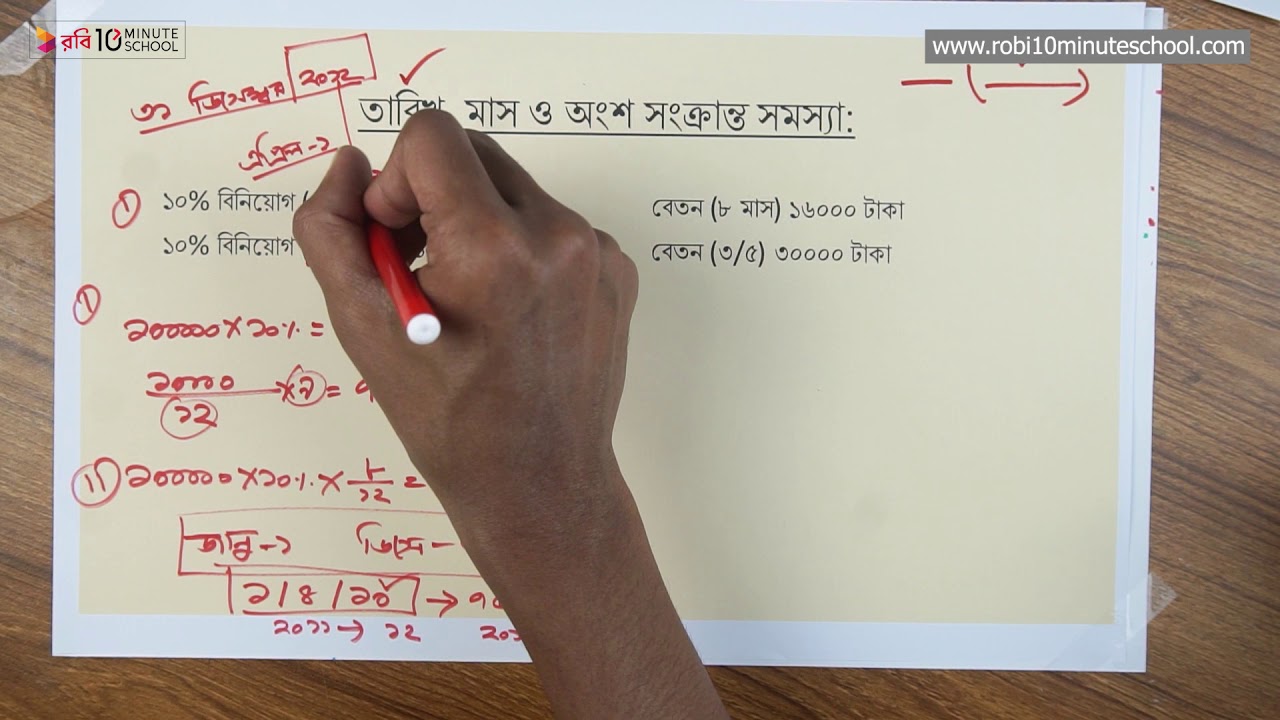 রবি 10 MINUTE SCHOOL
www.robi10minuteschool.com
৩১ ডিসেম্বর ২০১২
তারিখ, মাস ও অংশ সংক্রান্ত সমস্যা:
এপ্রিল-১
১ ১০% বিনিয়োগ ( বেতন (৮ মাস) ১৬০০০ টাকা
১০% বিনিয়োগ বেতন (৩/৫) ৩০০০০ টাকা
১০০০০০×১০% =
১০০০০/১২ ×৯ =
11 ১০০০০০ ×১০% × ৮/১২ =
জানু-১ ডিসে-
১/৪/১০ →
২০১১ → ১২